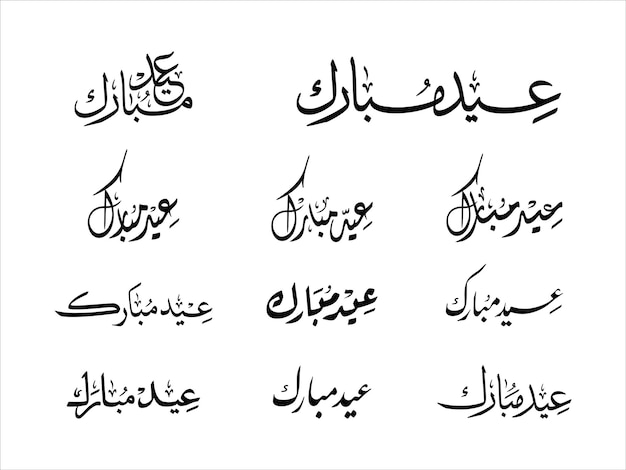 عيد مبارك
عيد مبارك
عيد مبارك
عيد مبارك
عيد مبارك
عيد مبارك
عيد مبارك
عيد مبارك
عيد مبارك
عيد مبارك
عيد مبارك